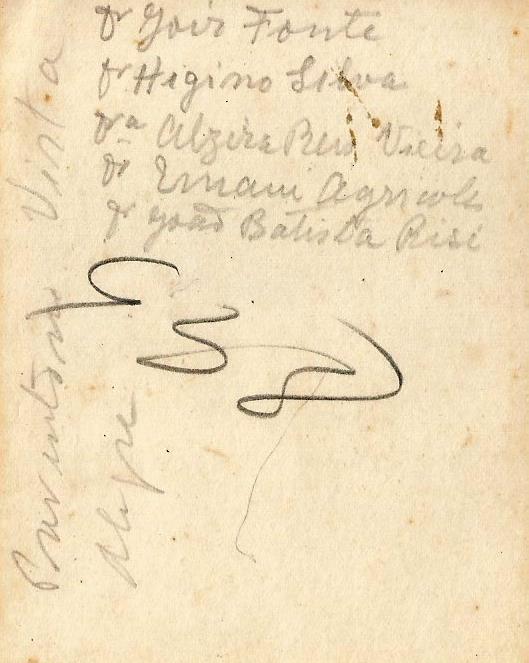 Dr Joir Fonte
Dr Higino Silva
Dra Alzira Reis Vieira
Dr Ernani Agricola
Dr João Batista Risi
Vista
Alegre